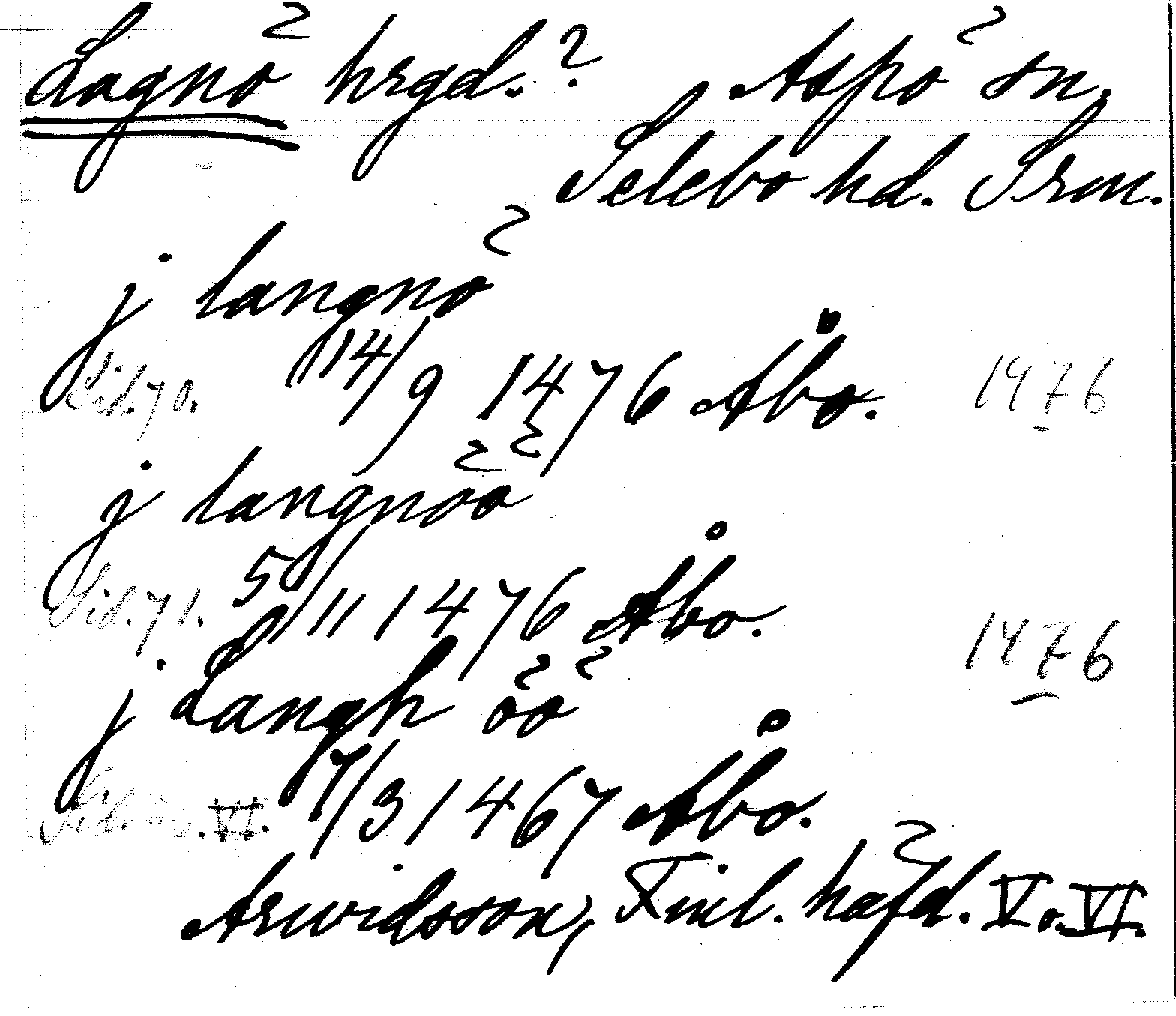 Lagnö hrgd.? Aspö sn.
Selebo hd. Srm.
j langnö
Sid. 70. 14/9 1476 Åbo. 1476
j langnöö
Sid. 71. 5/11 1476 Åbo. 1476
j Langh öö
VI. 7/3 1467 Åbo.
Arwidsson, Finl. häfd. V. o. VI.